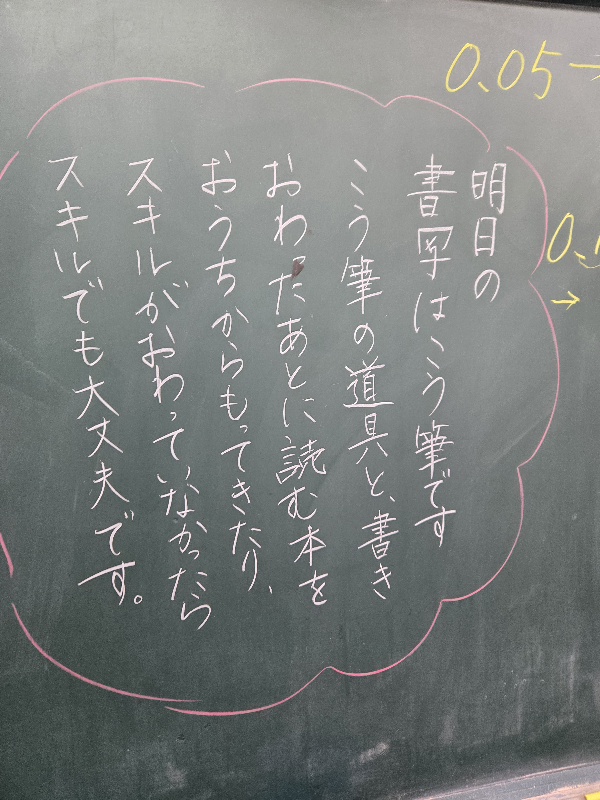 明日の
書写はこう筆です
こう筆の道具と、書き
おわったあとに読む本を
おうちからもってきたり、
スキルがおわっていなかったら
スキルでも大丈夫です。
0.05→
0.
→